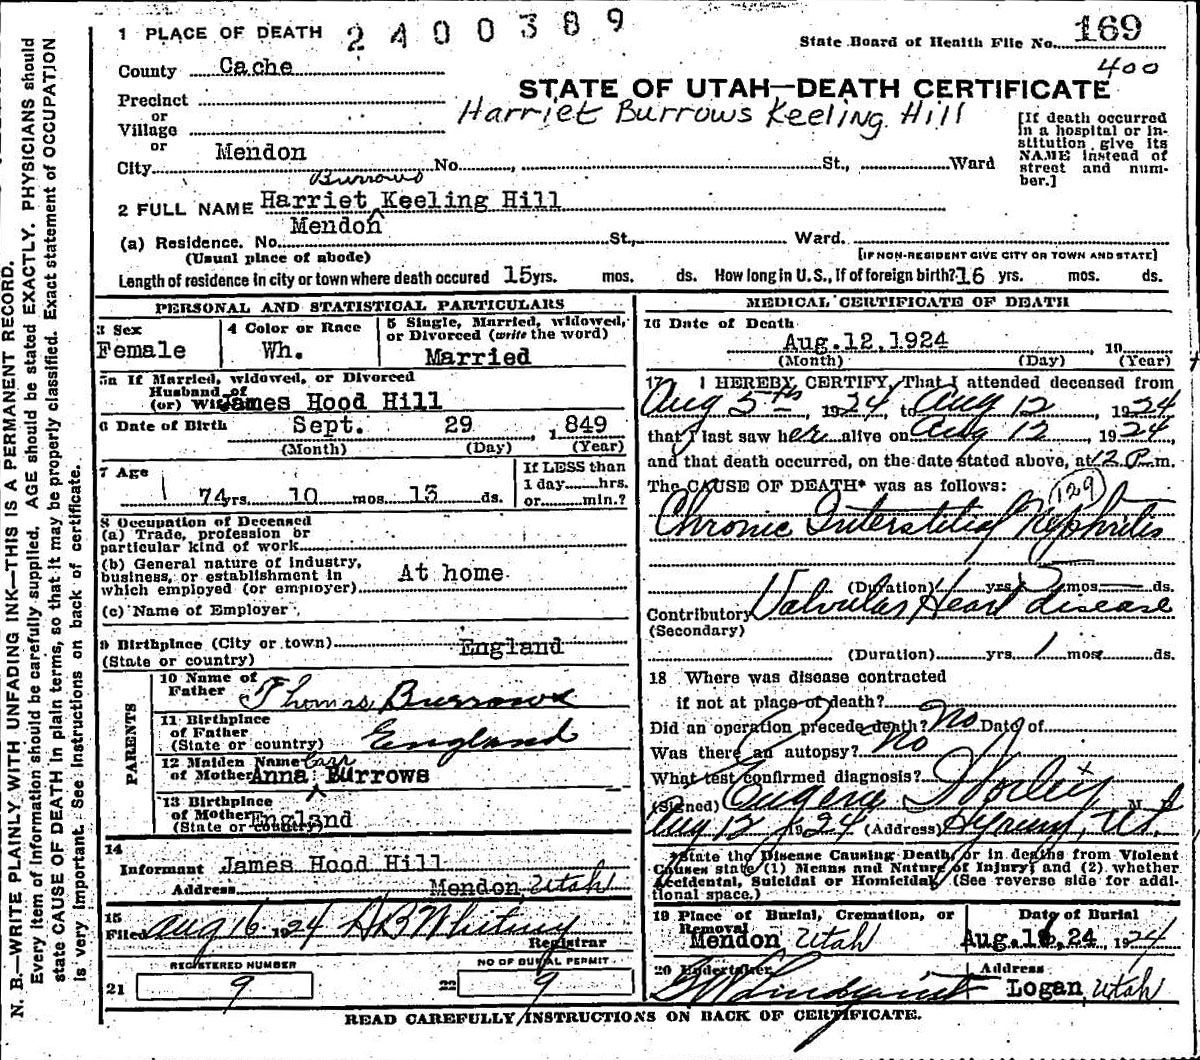 N. B.—WRITE PLAINLY WITH UNFADING INK—THIS IS A PERMANENT RECORD.
Every item of information should be carefully supplied. AGE should be stated EXACTLY. PHYSICIANS should
state CAUSE OF DEATH in plain terms, so that it may be properly classified. Exact statement of OCCUPATION
is very important. See instructions on back of certificate.
1 PLACE OF DEATH 2400389
State Board of Health File No. 169
400
County Cache
STATE OF UTAH—DEATH CERTIFICATE
Precinct
or
Village
or
Harriet Burrows Keeling Hill
[If death occurred
in a hospital or in-
stitution give its
NAME instead of
street and num-
ber.]
City Mendon No. St., Ward
Burrows
2 FULL NAME Harriet ^ Keeling Hill
(a) Residence. No. Mendon St., Ward.
(Usual place of abode) [IF NON-RESIDENT GIVE CITY OR TOWN AND STATE]
Length of residence in city or town where death occured 15 yrs. mos. ds. How long in U.S., If of foreign birth? 16 yrs. mos. ds.
PERSONAL AND STATISTICAL PARTICULARS
3 Sex
Female
4 Color or Race
Wh.
5 Single, Married, widowed,
or Divorced (write the word)
Married
5a If Married, widowed, or Divorced
Husband of
(or) Wife James Hood Hill
6 Date of Birth Sept. 29, 1849
(Month) (Day) (Year)
7 Age
74 yrs. 10 mos. 13 ds.
If LESS than
1 day......hrs.
or......min.?
8 Occupation of Deceased
(a) Trade, profession or
particular kind of work
(b) General nature of industry,
business, or establishment in
which employed (or employer) At home
(c) Name of Employer
9 Birthplace (City or town) England
(State or country)
PARENTS
10 Name of
Father Thomas Burrows
11 Birthplace
of Father
(State or country) England
12 Maiden Name Carr
of Mother Anna ^ Burrows
13 Birthplace
of Mother
(State or country) England
14
Informant James Hood Hill
Address Mendon Utah
15
Filed Aug 16 1924 H B Whitney
Registrar
REGISTERED NUMBER
21 9
NO OF BURIAL PERMIT
22 9
MEDICAL CERTIFICATE OF DEATH
16 Date of Death
Aug. 12, 1924, 19
(Month) (Day) (Year)
17 I HEREBY CERTIFY, That I attended deceased from
Aug 5th, 1924, to Aug 12, 1924
that I last saw her alive on Aug 12, 1924,
and that death occurred, on the date stated above, at 12 P.m.
The CAUSE OF DEATH* was as follows:
129
Chronic Interstitial Nephritis
(Duration) yrs. 5 mos. — ds.
Contributory Valvular Heart disease
(Secondary)
(Duration) yrs. 1 mos. ds.
18 Where was disease contracted
if not at place of death?
Did an operation precede death? No Date of
Was there an autopsy? No
What test confirmed diagnosis?
(Signed) Eugene Worley M. D
Aug 12 1924 (Address) Hyrum, Ut.
*State the Disease Causing Death, or in deaths from Violent
Causes state (1) Means and Nature of Injury; and (2) whether
Accidental, Suicidal or Homicidal. (See reverse side for addi-
tional space.)
19 Place of Burial, Cremation, or
Removal
Mendon Utah
Date of Burial
Aug. 16, 24, 1924
20 Undertaker
Address
Logan, Utah
READ CAREFULLY INSTRUCTIONS ON BACK OF CERTIFICATE.